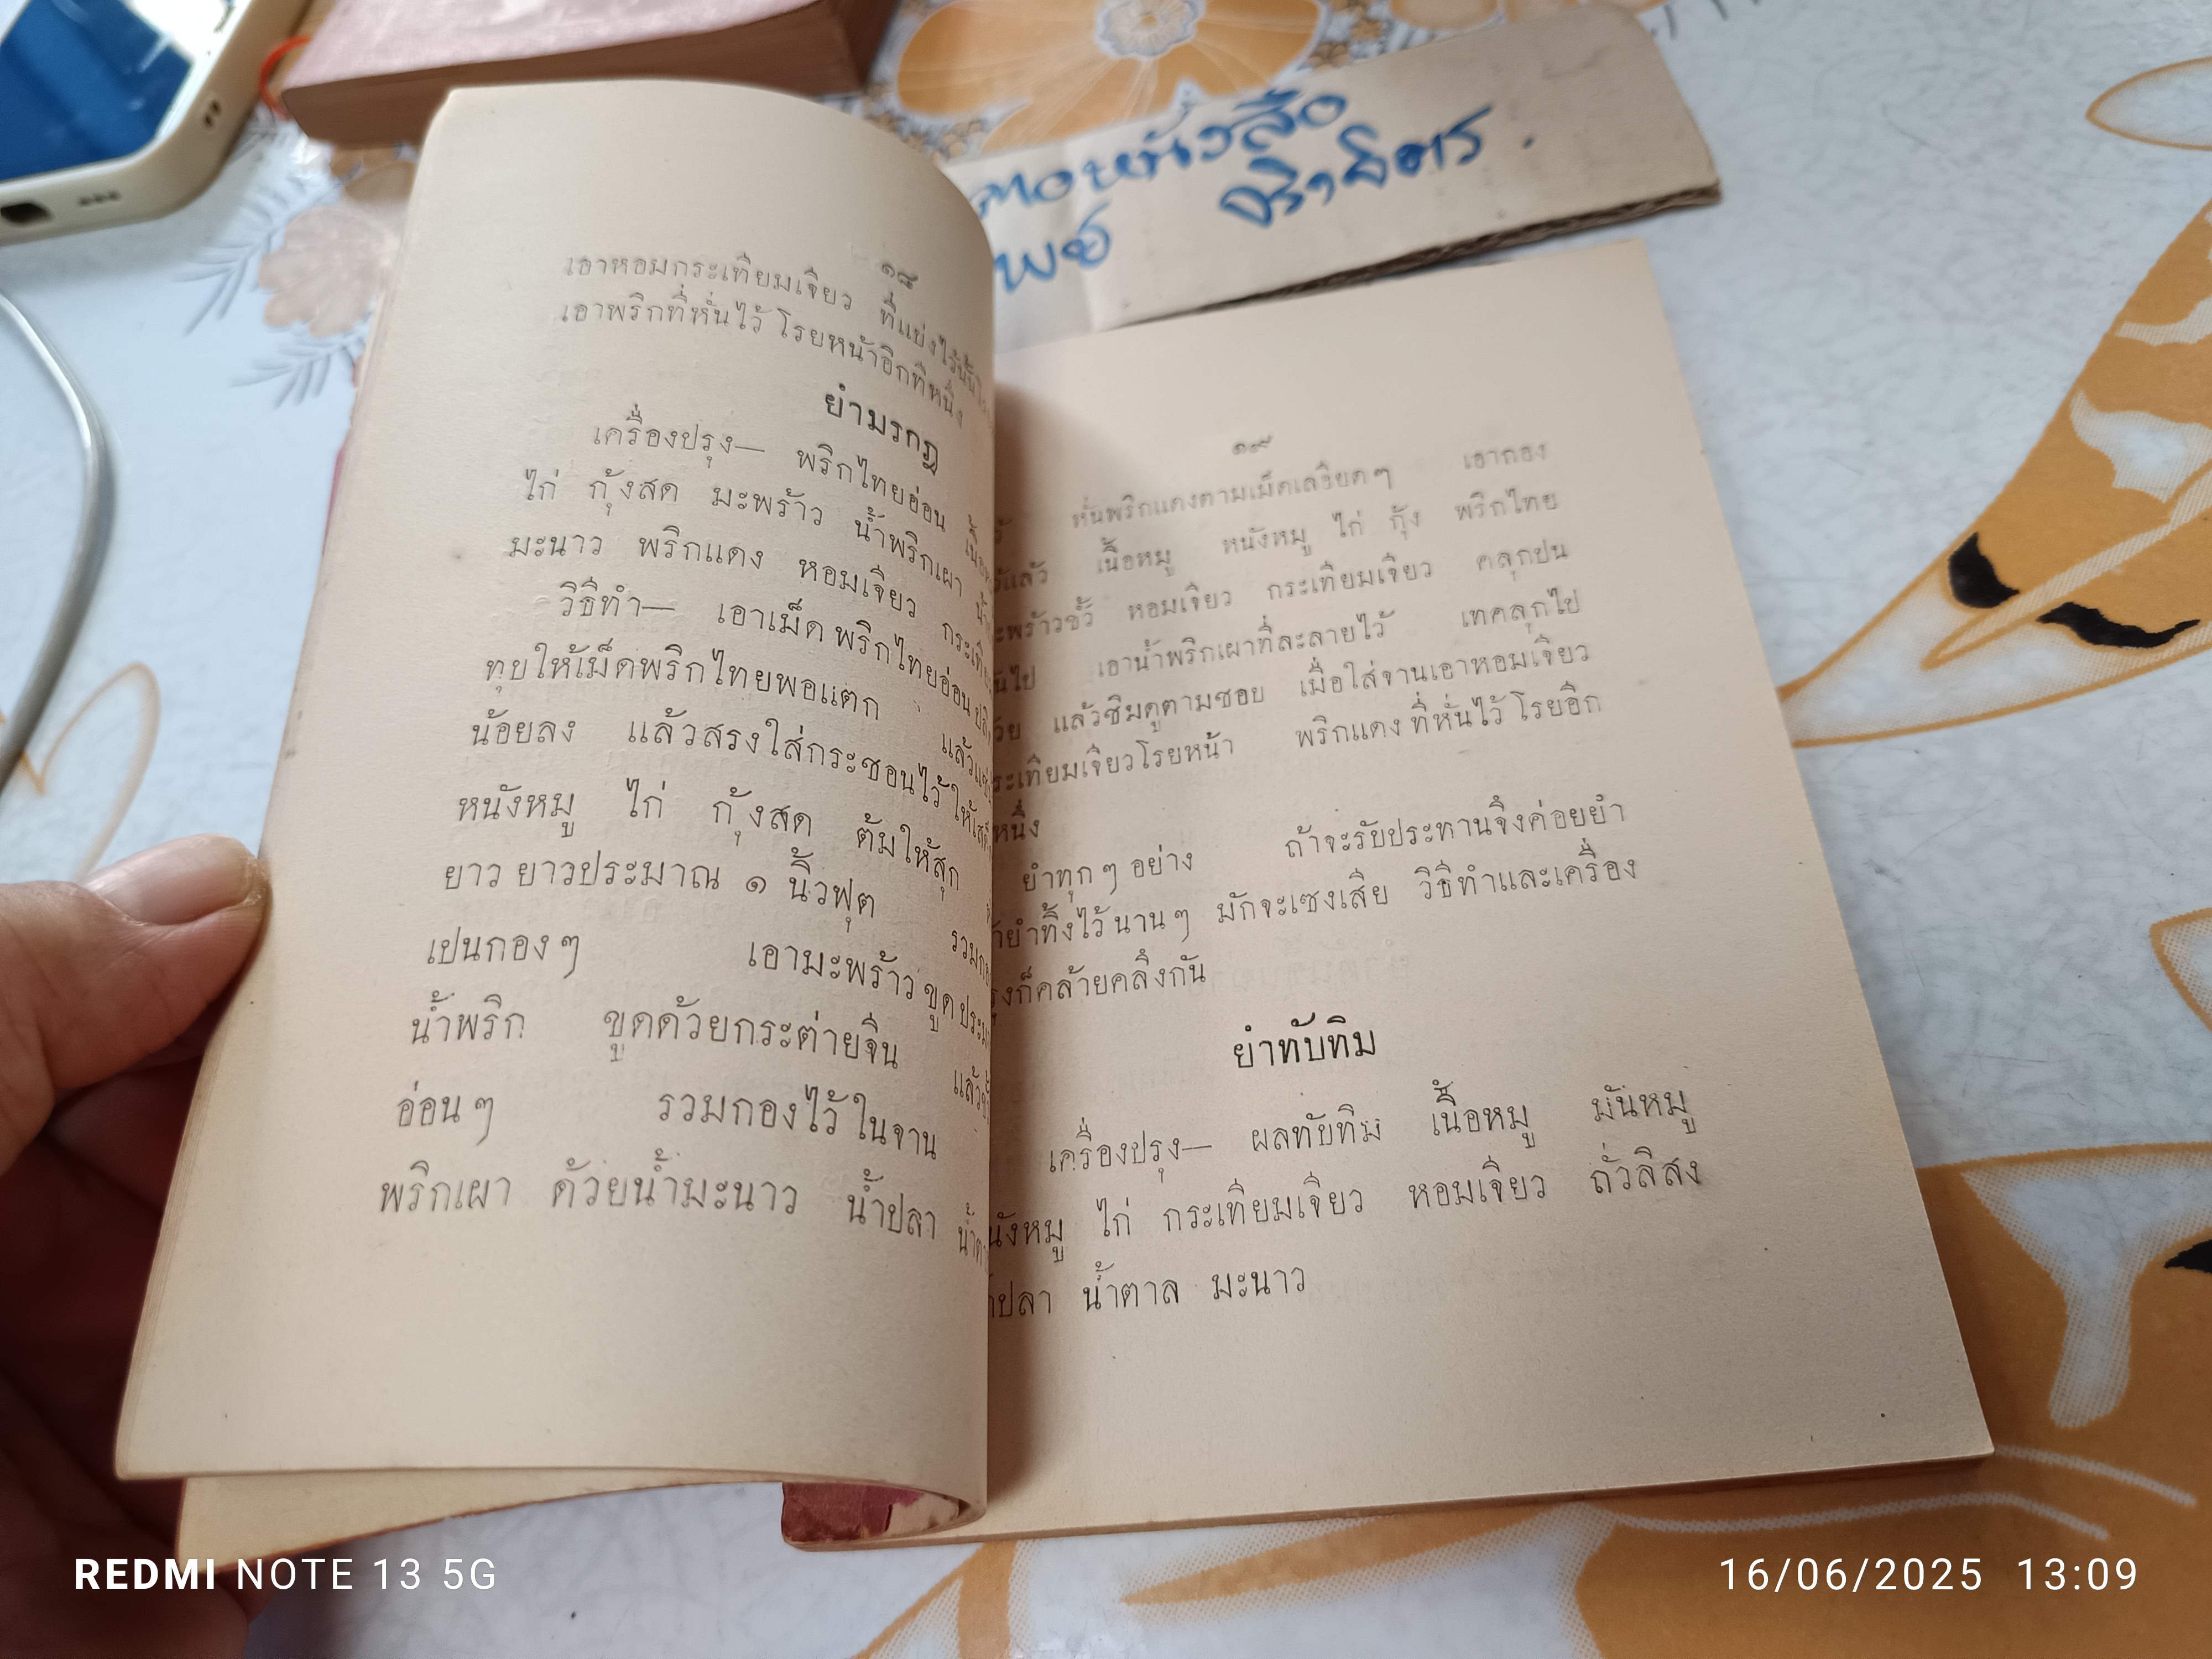 ๑๘
เอาหอมกระเทียมเจียว ที่แย่งไว้นั้น
เอาพริกที่หั่นไว้ โรยหน้าอีกทีหนึ่ง
ยำมรกฏ
เครื่องปรุง— พริกไทยอ่อน
ไก่ กุ้งสด มะพร้าว น้ำพริกเผา
มะนาว พริกแดง หอมเจียว
วิธีทำ— เอาเม็ดพริกไทยอ่อน
ทุบให้เม็ดพริกไทยพอแตก
น้อยลง แล้วสรงใส่กระชอนไว้
หนังหมู ไก่ กุ้งสด ต้มให้สุก
ยาว ยาวประมาณ ๑ นิ้วฟุต
เปนกองๆ เอามะพร้าวขูด
น้ำพริก ขูดด้วยกระต่ายจีน
อ่อนๆ รวมกองไว้ในจาน
พริกเผา ด้วยน้ำมะนาว น้ำปลา
๑๙
หั่นพริกแดงตามเม็ดเลอียดๆ เอากอง
เนื้อหมู หนังหมู ไก่ กุ้ง พริกไทย
หอมเจียว กระเทียมเจียว คลุกปน
เอาน้ำพริกเผาที่ละลายไว้ เทคลุกไป
แล้วชิมดูตามชอบ เมื่อใส่จานเอาหอมเจียว
โรยหน้า พริกแดงที่หั่นไว้ โรยอีก
หนึ่ง
ยำทุกๆ อย่าง ถ้าจะรับประทานจึงค่อยยำ
ยำทิ้งไว้นานๆ มักจะเซงเสีย วิธีทำและเครื่อง
ก็คล้ายคลึงกัน
ยำทับทิม
เครื่องปรุง— ผลทับทิม เนื้อหมู มันหมู
ไก่ กระเทียมเจียว หอมเจียว ถั่วลิสง
น้ำตาล มะนาว
REDMI NOTE 13 5G
16/06/2025 13:09